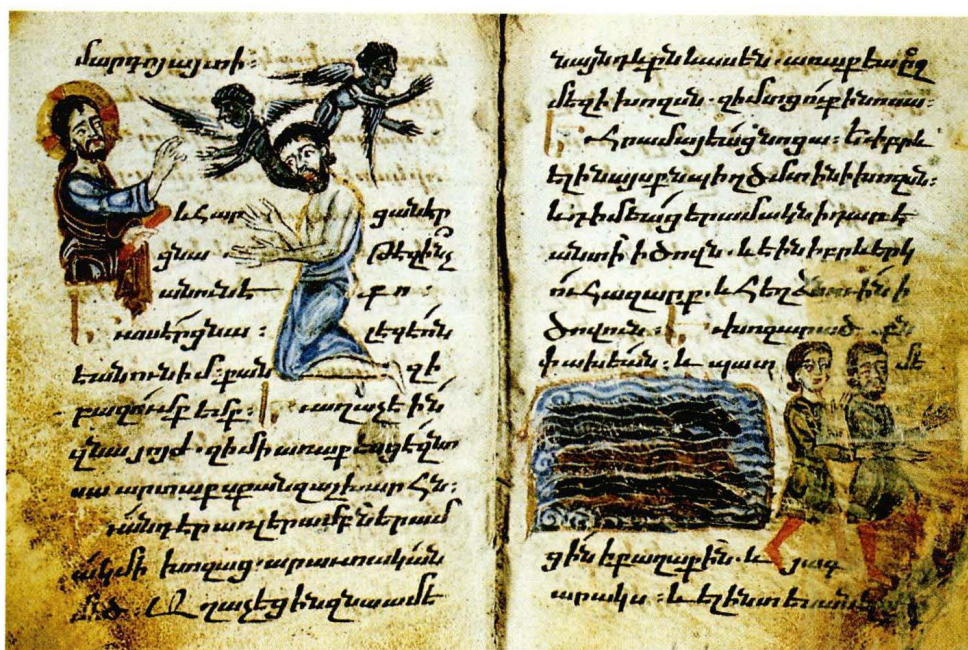 մարդոյ այտի:
և հարցանէր
ցնա թէ զինչ
անուն է քո:
Ե ասէր ցնա: լեգէոն
է անուն իմ. քան զի
բազումք եմք: Ե աղաչէին
զնա յոյժ. զի մի առաքեսցէ զնո
սա արտաքս քան զաշխարհն:
անդ էր առ լերամբն երամ
ակ մի խոզաց արաւտական
Աղաչեցին զնա ամե
նայն դևքն և ասեն. առաքեա զ
մեզ ի խոզսն. զի մտցուք ի նոսա:
Ե հրամայեաց նոցա: և իբրև
ելին այսքն պիղծ մտին ի խոզսն:
և դիմեաց երամակն ի դարէ
անտի ի ծովն. և էին իբրև երկ
ու հազարք. և հեղձնուին ի
ծովուն: Ե խոզարածքն
փախեան. և պատմե
ցին ի քաղաքին. և յագ
արակս: և ելին տեսանել